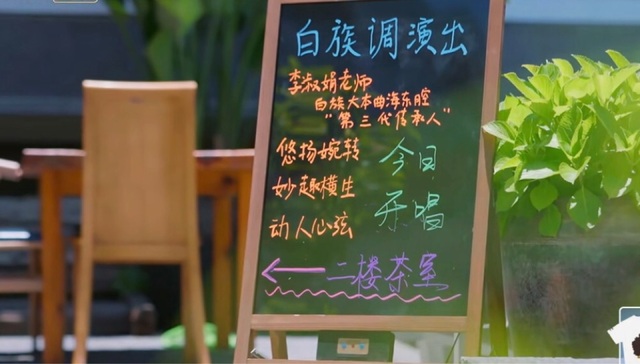 白族调演出
李淑娟老师
白族大本曲海东腔
"第三代传承人"
悠扬婉转
妙趣横生
动人心弦
今日
开唱
二楼茶室